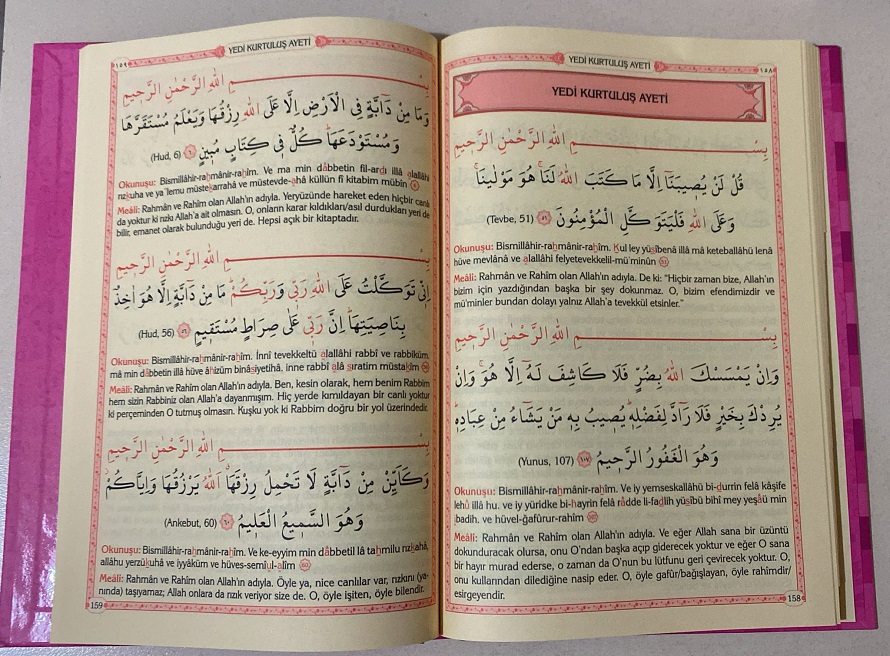 YEDİ KURTULUŞ AYETİ
١٥٨
YEDİ KURTULUŞ AYETİ
بِسْــــــمِ اللهِ الرَّحْمٰنِ الرَّحِيمِ
قُلْ لَنْ يُصِيبَنَٓا اِلَّا مَا كَتَبَ اللهُ لَنَاۚ هُوَ مَوْلٰينَاۚ
وَعَلَى اللهِ فَلْيَتَوَكَّلِ الْمُؤْمِنُونَ ﴿٥١﴾ (Tevbe, 51)
Okunuşu: Bismillâhir-rahmânir-rahîm. Kul ley yüsîbenâ illâ mâ keteballâhü lenâ
hüve mevlânâ ve alallâhi felyetevekkelil-mü'minûn 51
Meâli: Rahmân ve Rahîm olan Allah'ın adıyla. De ki: "Hiçbir zaman bize, Allah'ın
bizim için yazdığından başka bir şey dokunmaz. O, bizim efendimizdir ve
mü'minler bundan dolayı yalnız Allah'a tevekkül etsinler."
بِسْــــــمِ اللهِ الرَّحْمٰنِ الرَّحِيمِ
وَاِنْ يَمْسَسْكَ اللهُ بِضُرٍّ فَلَا كَاشِفَ لَهُٓ اِلَّا هُوَۚ وَاِنْ
يُرِدْكَ بِخَيْرٍ فَلَا رَٓادَّ لِفَضْلِهٖۜ يُصِيبُ بِهٖ مَنْ يَشَٓاءُ مِنْ عِبَادِهٖۜ
وَهُوَ الْغَفُورُ الرَّحِيمُ ﴿١٠٧﴾ (Yunus, 107)
Okunuşu: Bismillâhir-rahmânir-rahîm. Ve iy yemseskallâhü bi-durrin felâ kâşife
lehû illâ hu. ve iy yüridke bi-hayrin felâ râdde li-fadlih yüsîbü bihî mey yeşâü min
ibadih. ve hüvel-ğafûrur-rahîm 107
Meâli: Rahmân ve Rahîm olan Allah'ın adıyla. Ve eğer Allah sana bir üzüntü
dokunduracak olursa, onu O'ndan başka açıp giderecek yoktur ve eğer O sana
bir hayır murad ederse, o zaman da O'nun bu lütfunu geri çevirecek yoktur. O,
onu kullarından dilediğine nasip eder. O, öyle gafûr/bağışlayan, öyle rahîmdir/
esirgeyendir.
158
١٥٩
YEDİ KURTULUŞ AYETİ
بِسْــــــمِ اللهِ الرَّحْمٰنِ الرَّحِيمِ
وَمَا مِنْ دَٓابَّةٍ فِي الْاَرْضِ اِلَّا عَلَى اللهِ رِزْقُهَا وَيَعْلَمُ مُسْتَقَرَّهَا
وَمُسْتَوْدَعَهَاۜ كُلٌّ فِي كِتَابٍ مُبِينٍ ﴿٦﴾ (Hud, 6)
Okunuşu: Bismillâhir-rahmânir-rahîm. Ve ma min dâbbetin fil-ardı illâ alallâhi
rızkuha ve ya'lemu müstekarrahâ ve müstevde-ahâ küllün fî kitabim mübîn 6
Meâli: Rahmân ve Rahîm olan Allah'ın adıyla. Yeryüzünde hareket eden hiçbir canlı
da yoktur ki rızkı Allah'a ait olmasın. O, onların karar kıldıkları/asıl durdukları yeri de
bilir, emanet olarak bulunduğu yeri de. Hepsi açık bir kitaptadır.
بِسْــــــمِ اللهِ الرَّحْمٰنِ الرَّحِيمِ
اِنِّي تَوَكَّلْتُ عَلَى اللهِ رَبِّي وَرَبِّكُمْۜ مَا مِنْ دَٓابَّةٍ اِلَّا هُوَ اٰخِذٌ
بِنَاصِيَتِهَاۜ اِنَّ رَبِّي عَلٰى صِرَاطٍ مُسْتَقِيمٍ ﴿٥٦﴾ (Hud, 56)
Okunuşu: Bismillâhir-rahmânir-rahîm. İnnî tevekkeltü alallâhi rabbî ve rabbiküm,
mâ min dâbbetin illâ hüve âhizüm binâsiyetihâ, inne rabbî alâ sıratim müstakîm 56
Meâli: Rahmân ve Rahîm olan Allah'ın adıyla. Ben, kesin olarak, hem benim Rabbim
hem sizin Rabbiniz olan Allah'a dayanmışım. Hiç yerde kımıldayan bir canlı yoktur
ki perçeminden O tutmuş olmasın. Kuşku yok ki Rabbim doğru bir yol üzerindedir.
بِسْــــــمِ اللهِ الرَّحْمٰنِ الرَّحِيمِ
وَكَاَيِّنْ مِنْ دَٓابَّةٍ لَا تَحْمِلُ رِزْقَهَاۗ اَللهُ يَرْزُقُهَا وَاِيَّاكُمْۘ
وَهُوَ السَّمِيعُ الْعَلِيمُ ﴿٦٠﴾ (Ankebut, 60)
Okunuşu: Bismillâhir-rahmânir-rahîm. Ve ke-eyyim min dâbbetil lâ tahmilu rızkahâ,
allâhu yerzükuhâ ve iyyâküm ve hüves-semîul-alîm 60
Meâli: Rahmân ve Rahîm olan Allah'ın adıyla. Öyle ya, nice canlılar var, rızkını (ya-
nında) taşıyamaz; Allah onlara da rızık veriyor size de. O, öyle işiten, öyle bilendir.
159